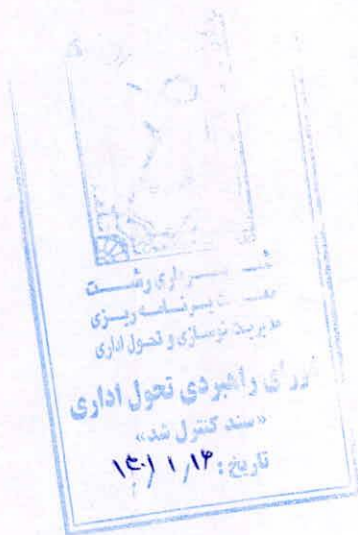 شهرداری رشت
معاونت برنامه ریزی
مدیریت نوسازی و تحول اداری
شورای راهبردی تحول اداری
«سند کنترل شد»
تاریخ: ۱۴۰۱/۱/۱۴